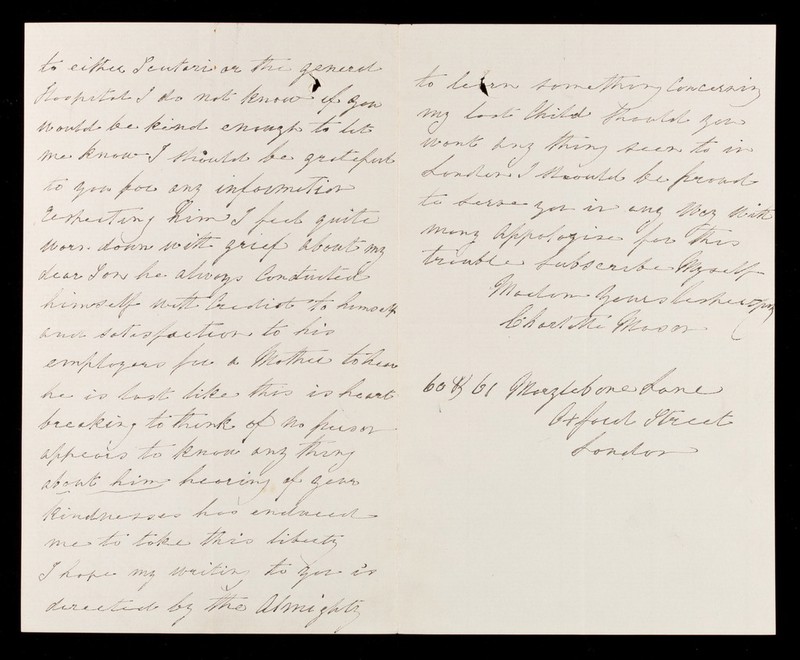 to either Scutari or the general
Hospital I do not know if you
would be kind enough to let
me know I should be grateful
to you for any information
respecting him I feel quite
worn down with grief about my
dear Son he always Conducted
himself with Credit to himself
and satisfaction to his
employers for a Mother to hear
he is lost like this is heart
breaking to think of no person
appears to know any thing
about him hearing of your
kindnesses has enduced
me to take this liberty
I hope my writing to you is
directed by the Almighty
to learn something Concerning
my lost Child Should you
want any thing seen to in
London I should be proud
to serve you in any way With
many Appologise for this
trouble subscribe Myself
Madam Yours Respectfully
Charlotte Mason
60 & 61 Marylebone Lane
Oxford Street
London